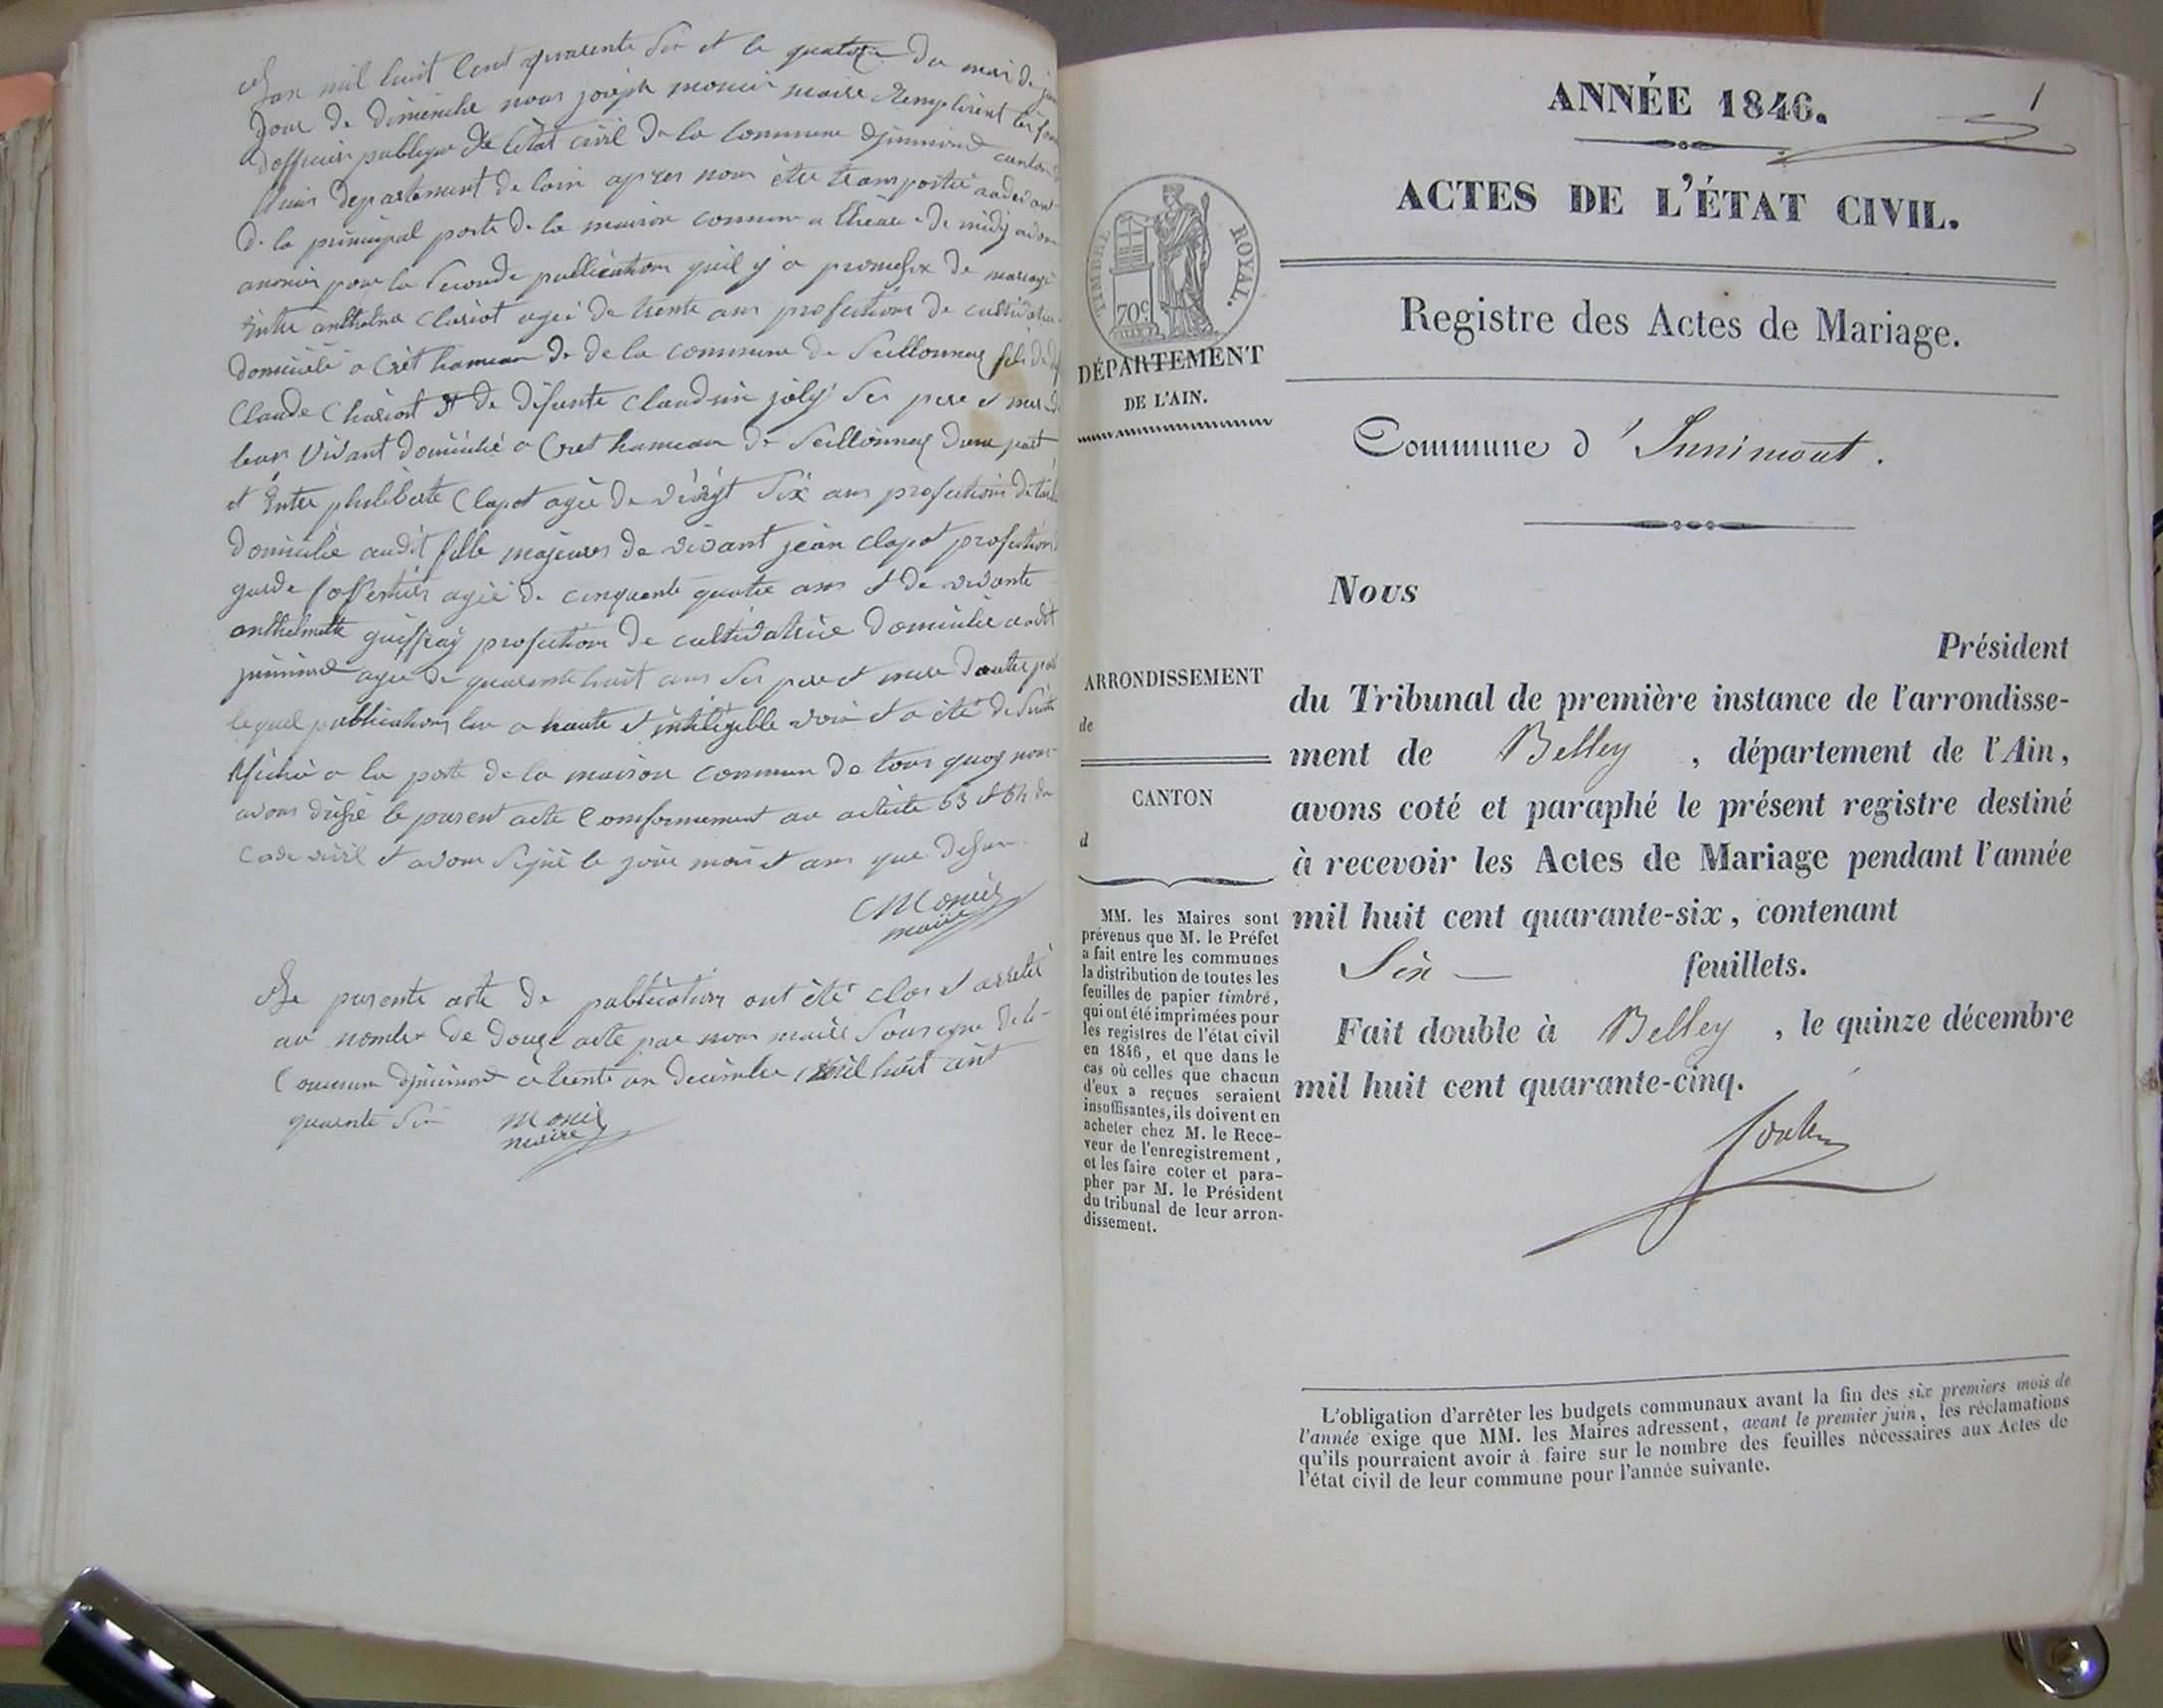 Lan mil huit Cent quarente Six et le quatorze Du moi de
Jour de dimenche nous joseph monier maire Remplirent les
dofficier publique de letat civil de la Commune djnnimond canton
departement de lain apres nous être transportée audevant
de la principal porte de la maison commune a lheure de midy avons
anoncer pour la Seconde publication quil y a promesse de mariage
Entre anthelme Chariot agée de trente ans profections de cultivateur
domicilié a Crêt hameau de de la commune de Seillonnaz fils de
Claude Chariot et de défunte Claudine joly Ses pere et mere
leur Vivant domicilié a Cret hameau de Seillonnaz dune part
et Entre philiberte Clapot agée de vingt Six ans profections de
domicilié audit fille majeures de vivant jean clapot profections
garde forestier agée de cinquente quatre ans et de vivante
anthelmette guiffray profections de cultivatrice domicilie audit
jnnimond agée de quarente huit ans Ses pere et mere dautre part
lequel publications lue a haute et intéligible voix et a été de Suite
Afichée a la porte de la maison commune de tous quoy nous
avons dréssé le present acte Comformement au article 63 et 64 du
Code civil et avons Signé le jour mois et ans que dessus
Monier
maire
Le presente acte de publication ont été clos et arretté
au nombre de douze acte par nous maire Sousigné de la
Commune djnnimond ce trente un decembre mil huit cent
quarente Six Monier
maire
1
ANNÉE 1846.
ACTES DE L'ÉTAT CIVIL.
TIMBRE ROYAL.
70c
Registre des Actes de Mariage.
DÉPARTEMENT
DE L'AIN.
Commune d'Innimont.
Nous
Président
ARRONDISSEMENT
de
CANTON
d
du Tribunal de première instance de l'arrondisse-
ment de Belley , département de l'Ain,
avons coté et paraphé le présent registre destiné
à recevoir les Actes de Mariage pendant l'année
mil huit cent quarante-six, contenant
Six — feuillets.
Fait double à Belley , le quinze décembre
mil huit cent quarante-cinq.
MM. les Maires sont
prévenus que M. le Préfet
a fait entre les communes
la distribution de toutes les
feuilles de papier timbré,
qui ont été imprimées pour
les registres de l'état civil
en 1846, et que dans le
cas où celles que chacun
d'eux a reçues seraient
insuffisantes, ils doivent en
acheter chez M. le Rece-
veur de l'enregistrement,
et les faire coter et para-
pher par M. le Président
du tribunal de leur arron-
dissement.
L'obligation d'arrêter les budgets communaux avant la fin des six premiers mois de
l'année exige que MM. les Maires adressent, avant le premier juin, les réclamations
qu'ils pourraient avoir à faire sur le nombre des feuilles nécessaires aux Actes de
l'état civil de leur commune pour l'année suivante.